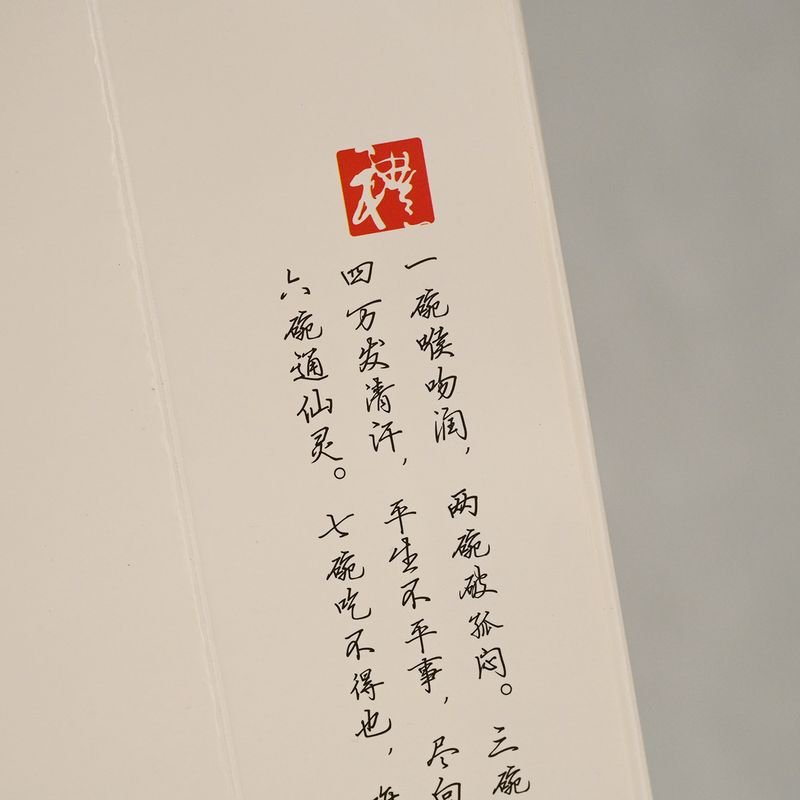 禮
一碗喉吻润，两碗破孤闷。三碗
四万发清汗，平生不平事，尽向
六碗通仙灵。七碗吃不得也，